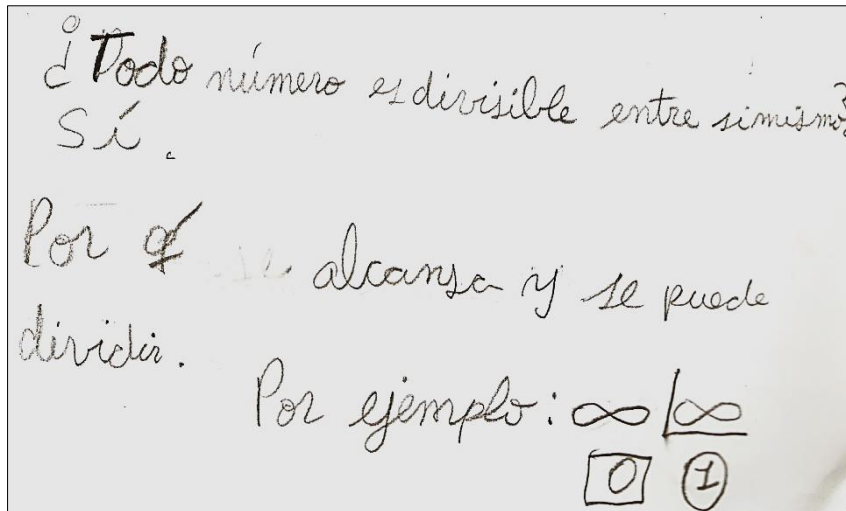 ¿Todo número es divisible entre simismo?
Sí.
Por q alcansa y se puede
dividir.
Por ejemplo: ∞ ∞
0 1